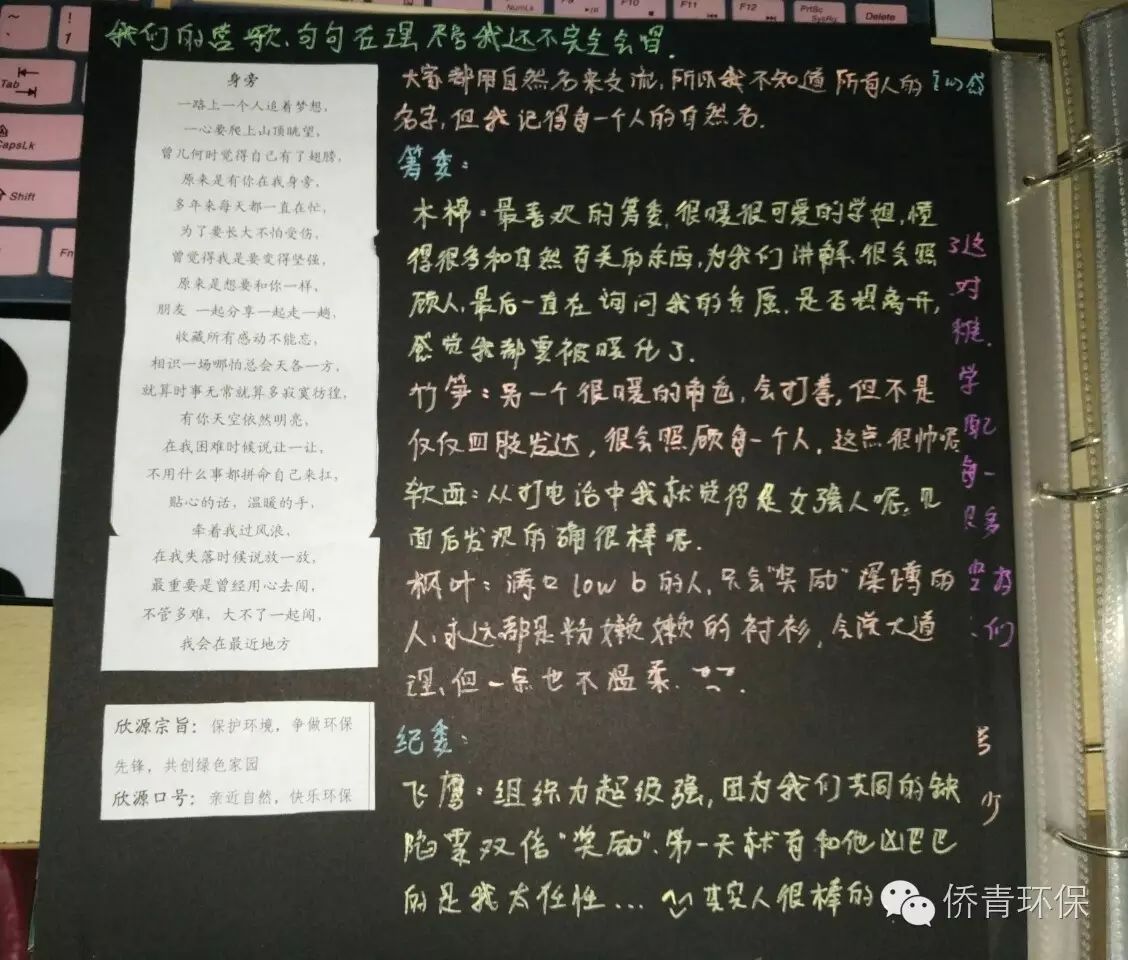 我们的营歌,句句在理,尽管我还不完全会唱.
身旁
一路上一个人追着梦想，
一心要爬上山顶眺望，
曾几何时觉得自己有了翅膀，
原来是有你在我身旁，
多年来每天都一直在忙，
为了要长大不怕受伤，
曾觉得我是要变得坚强，
原来是想要和你一样，
朋友 一起分享一起走一趟，
收藏所有感动不能忘，
相识一场哪怕总会天各一方，
就算时事无常就算多寂寞彷徨，
有你天空依然明亮，
在我困难时候说让一让，
不用什么事都拼命自己来扛，
贴心的话，温暖的手，
牵着我过风浪，
在我失落时候说放一放，
最重要是曾经用心去闯，
不管多难，大不了一起闯，
我会在最近地方
欣源宗旨：保护环境，争做环保
先锋，共创绿色家园
欣源口号：亲近自然，快乐环保
大家都用自然名来交流,所以我不知道所有人的
名字,但我记得每一个人的自然名.
筹委:
木棉:最喜欢的筹委,很暖很可爱的学姐,懂
得很多和自然有关的东西,为我们讲解.很会照
顾人,最后一直在询问我的意愿,是否想离开,
感觉我都要被暖化了.
竹笋:另一个很暖的角色,会打拳,但不是
仅仅四肢发达,很会照顾每一个人,这点很帅呢
软面:从打电话中我就觉得是女强人呢,见
面后发现的确很棒呀.
枫叶:满口low b的人,只会"奖励"深蹲的
人,永远都是粉嫩嫩的衬衫,会说大道
理,但一点也不温柔.
纪委:
飞鹰:组织力超级强,因为我们共同的缺
陷要双倍"奖励".第一天就有和他凶巴巴
的是我太任性... 其实人很棒的
了这
对
学
配
每一
只多
们
号
少
CapsLk
Tab
Shift
Fn
NumLk
F9
F10
F11
F12
PrtSc
SysRq
Delete
侨青环保